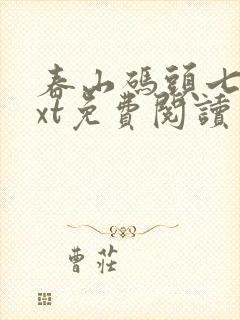 春山碼頭七
xt免費閱讀
曹莊